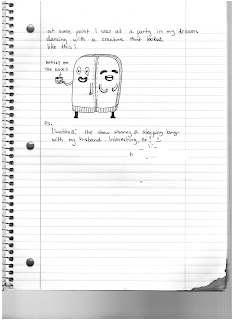 at some point I was at a party in my dreams
dancing with a creature that looked
like this:
WHISKY ON
THE ROCKS
PS.
I watched the show a sleeping bags
with my husband. Interesting,